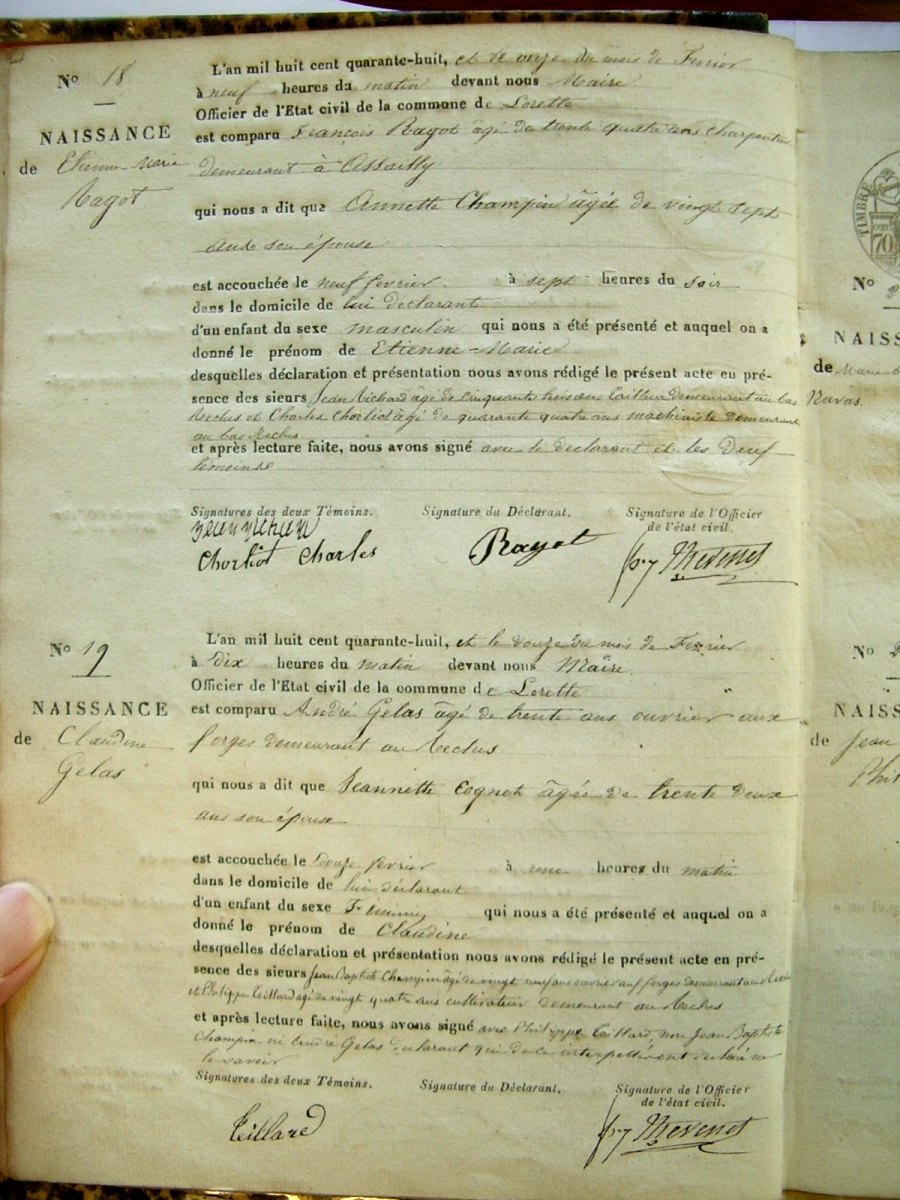 N° 18
NAISSANCE
de Etienne-Marie
Ragot
L'an mil huit cent quarante-huit, et le onze du mois de Fevrier
à neuf heures du matin devant nous Maire
Officier de l'Etat civil de la commune de Lorette
est comparu François Ragot âgé de trente quatre ans charpentier
demeurant à Assailly
qui nous a dit que Annette Champin âgée de vingt sept
ans son épouse
est accouchée le neuf fevrier à sept heures du soir
dans le domicile de lui déclarant
d'un enfant du sexe masculin qui nous a été présenté et auquel on a
donné le prénom de Etienne-Marie
desquelles déclaration et présentation nous avons rédigé le présent acte en pré-
sence des sieurs Jean Richard âgé de cinquante trois ans tailleur demeurant au bas
Reclus et Charles Chorliot âgé de quarante quatre ans machiniste demeurant
au bas Reclus
et après lecture faite, nous avons signé avec le declarant et les Deux
témoins
Signatures des deux Témoins. Signature du Déclarant. Signature de l'Officier
de l'état civil.
Chorliot Charles Ragot
N° 19
NAISSANCE
de Claudine
Gelas
L'an mil huit cent quarante-huit, et le douze du mois de Fevrier
à dix heures du matin devant nous Maire
Officier de l'Etat civil de la commune de Lorette
est comparu André Gelas âgé de trente ans ouvrier aux
forges demeurant au Reclus
qui nous a dit que Jeannette Cognet âgée de trente deux
ans son épouse
est accouchée le douze fevrier à une heures du matin
dans le domicile de lui déclarant
d'un enfant du sexe Féminin qui nous a été présenté et auquel on a
donné le prénom de Claudine
desquelles déclaration et présentation nous avons rédigé le présent acte en pré-
sence des sieurs Jean Baptiste Champin âgé de vingt neuf ans ouvrier aux forges demeurant au Reclus
et Philippe Teillard âgé de vingt quatre ans cultivateur demeurant au Reclus
et après lecture faite, nous avons signé avec Philippe Teillard, non Jean Baptiste
Champin ni André Gelas declarant qui de ce interpellé ont declaré ne
le savoir
Signatures des deux Témoins. Signature du Déclarant. Signature de l'Officier
de l'état civil.
Teillard
TIMBRE
70
N° 2
NAISS
de Marie
Navas
N°
NAISS
de Jean